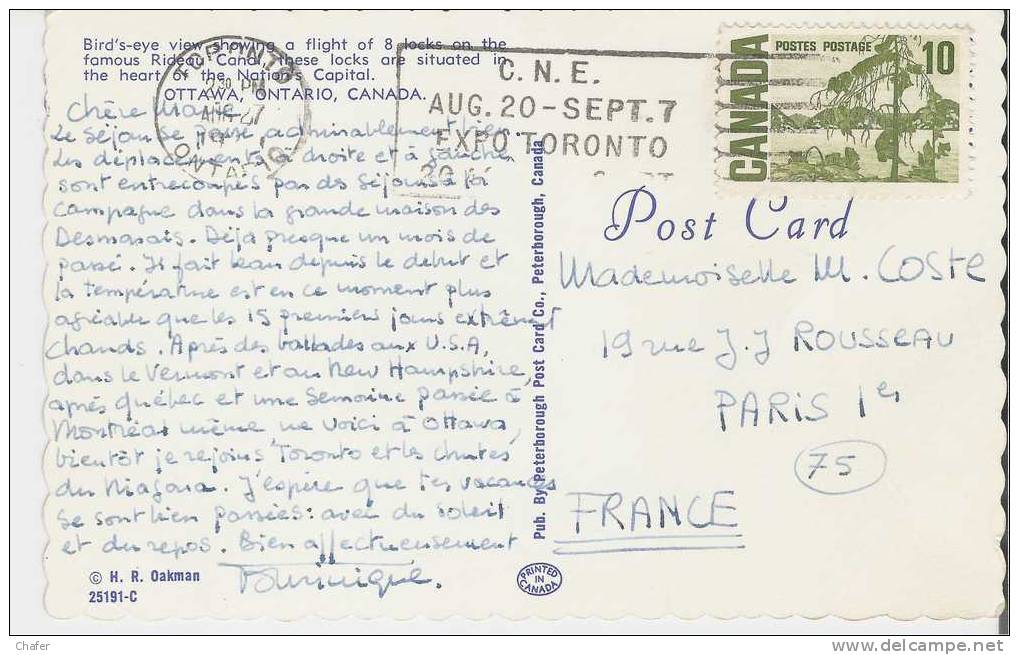 Bird's-eye view showing a flight of 8 locks on the
famous Rideau Canal, these locks are situated in
the heart of the Nation's Capital.
OTTAWA, ONTARIO, CANADA.
TORONTO
PM
27
19
ONTARIO
C.N.E.
AUG. 20 - SEPT. 7
EXPO TORONTO
CANADA
POSTES POSTAGE
10
Chère Marie
Le séjour se passe admirablement bien
Les déplacements à droite et à gauche
sont entrecoupés par des séjours à la
campagne dans la grande maison des
Desmarais. Déjà presque un mois de
passé. Il fait beau depuis le debut et
la température est en ce moment plus
agréable que les 15 premiers jours extrêmt
chauds. Après des ballades aux U.S.A,
dans le Vermont et au New Hampshire,
après Québec et une semaine passée à
Montréal même me voici à Ottawa,
bientôt je rejoins Toronto et les chutes
du Niagara. J'espère que tes vacances
se sont bien passées : avec du soleil
et du repos. Bien affectueusement
Dominique.
© H. R. Oakman
25191-C
Pub. By Peterborough Post Card Co., Peterborough, Canada
PRINTED IN CANADA
Post Card
Mademoiselle M. COSTE
19 rue J.J ROUSSEAU
PARIS 1er
75
FRANCE
Chafer
www.delcampe.net